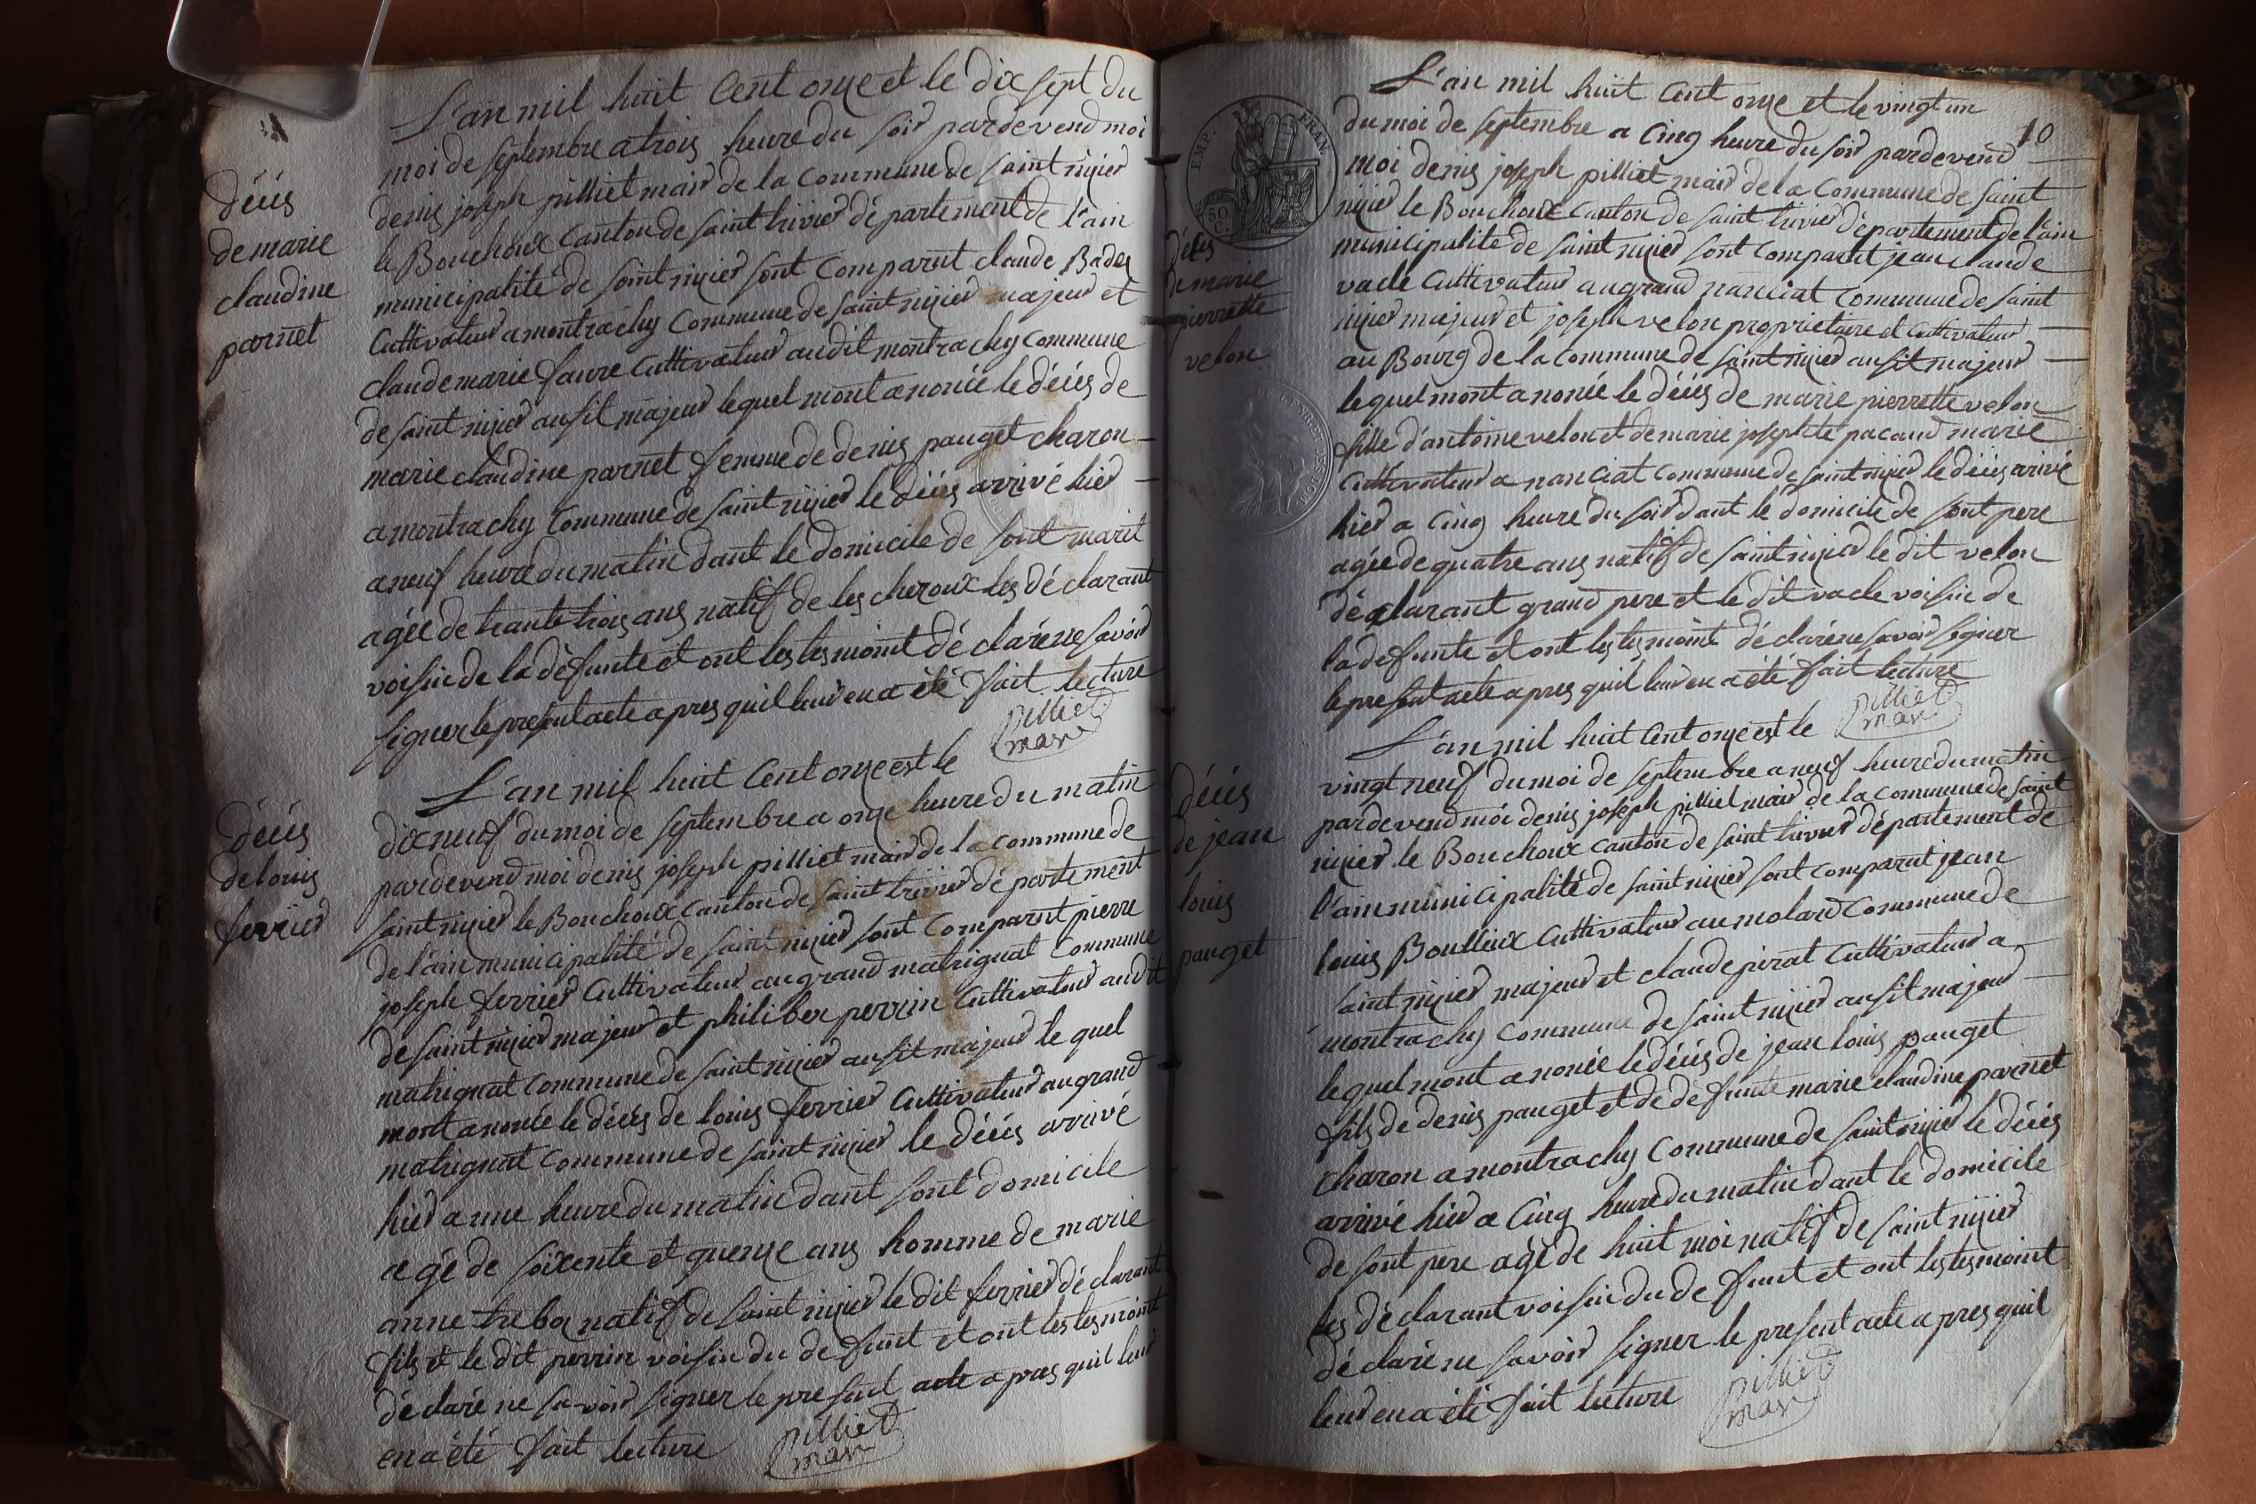 décés
de marie
claudine
parnet
L'an mil huit Cent onze et le dix sept du
moi de septembre a trois heure du soir pardevend moi
denis joseph pilliet mair de la Commune de saint nizier
le Bouchoux Canton de saint trivier département de l'ain
municipalité de saint nizier sont Comparut claude Badez
Cultivateur a montrachy Commune de saint nizier majeur et
claude marie favre Cultivateur audit montrachy Commune
de saint nizier ausit majeur lequel mont anoncé le décés de
marie claudine parnet femme de denis pauget charon
a montrachy Commune de saint nizier le décés arrivé hier
a neuf heure du matin dant le domicile de sont marit
agée de trante trois ans natif de les cheroux les déclarant
voisin de la défunte et ont les tesmoint déclaré ne savoir
signer le present acte apres quil leur en a été fait lecture
pilliet
mair
décés
de louis
ferrier
L'an mil huit Cent onze est le
dix neuf du moi de septembre a onze heure du matin
pardevend moi denis joseph pilliet mair de la Commune de
saint nizier le Bouchoux Canton de saint trivier département
de l'ain municipalité de saint nizier sont Comparut pierre
joseph ferrier Cultivateur au grand matrignat Commune
de saint nizier majeur et philiber perrin Cultivateur audit
matrignat Commune de saint nizier ausit majeur le quel
mont anoncé le décés de louis ferrier Cultivateur au grand
matrignat Commune de saint nizier le décés arrivé
hier a une heure du matin dant sont domicile
agé de soixente et quenze ans homme de marie
anne treboz natif de saint nizier le dit ferrier déclarant
fils et le dit perrin voisin du defunt et ont les tesmoint
déclaré ne savoir signer le present acte apres quil leur
en a été fait lecture
pilliet
mair
10
EMP. FRAN.
50
C.
décés
de marie
pierrette
velon
L'an mil huit Cent onze et le vingt un
du moi de septembre a Cinq heure du soir pardevend
moi denis joseph pilliet mair de la Commune de saint
nizier le Bouchoux Canton de saint trivier département de l'ain
municipalité de saint nizier sont Comparut jean claude
vacle Cultivateur au grand nanciat Commune de saint
nizier majeur et joseph velon proprietaire et Cultivateur
au Bourg de la Commune de saint nizier ausit majeur
lequel mont anoncé le décés de marie pierrette velon
fille d'antoine velon et de marie josephte pacaud marié
Cultivateur a nanciat Commune de saint nizier le décés arivé
hier a Cinq heure du soir dant le domicile de sont pere
agée de quatre ans natif de saint nizier le dit velon
déclarant grand pere et le dit vacle voisin de
la defunte et ont les tesmoint déclaré ne savoir signer
le present acte apres quil leur en a été fait lecture
pilliet
mair
décés
de jean
louis
pauget
L'an mil huit Cent onze est le
vingt neuf du moi de septembre a neuf heure du matin
pardevend moi denis joseph pilliet mair de la Commune de saint
nizier le Bouchoux Canton de saint trivier département de
l'ain municipalité de saint nizier sont Comparut jean
louis Boullieux Cultivateur au molard Commune de
saint nizier majeur et claude pirat Cultivateur a
montrachy Commune de saint nizier ausit majeur
lequel mont anoncé le décés de jean louis pauget
fils de denis pauget et de défunte marie claudine parnet
charon a montrachy Commune de saint nizier le décés
arrivé hier a Cinq heure du matin dant le domicile
de sont pere agé de huit moi natif de saint nizier
les déclarant voisin du defunt et ont les tesmoint
déclaré ne savoir signer le present acte apres quil
leur en a été fait lecture
pilliet
mair